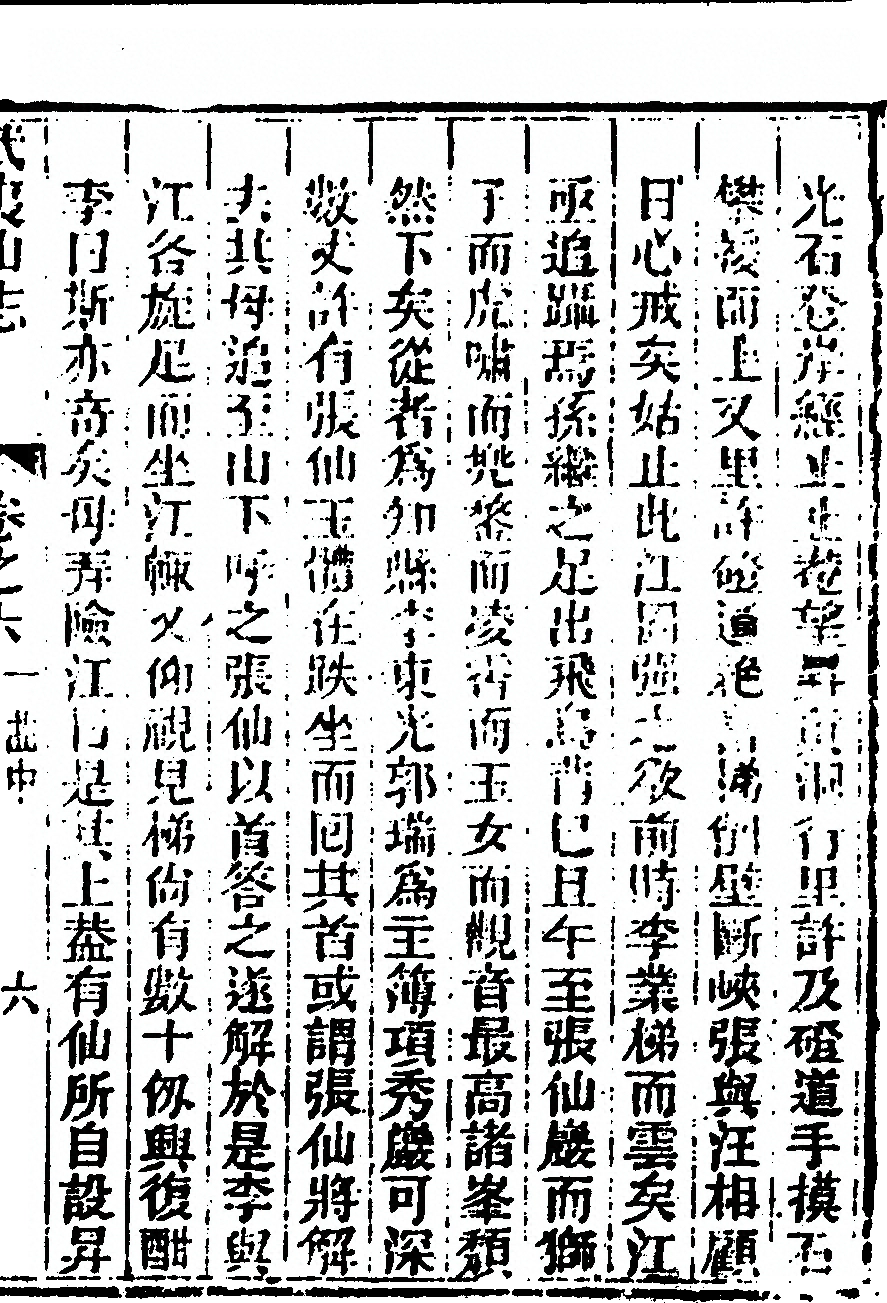 光石登岸經止止菴望昇眞洞行里許及磴道手摸石
攀援而上又里許磴道絶梯倒壁斷峽張與汪相顧
曰心戒矣姑止此江固強之欲前時李業梯而雲矣江
亟追躡焉孫繼之足出飛鳥背巳且午至張仙巖而獅
子而虎嘯而兠鍪而凌霄而玉女而觀音最高諸峯頹
然下矣從者爲知縣李東光郭瑞爲主簿項秀巖可深
數丈許有張仙玉體在趺坐而囘其首或謂張仙將解
去其母追至山下呼之張仙以首答之遂解於是李與
江各旋足而坐江輙又仰視見梯尙有數十仭興復酣
李曰斯亦奇矣毋弄險江曰是其上葢有仙所自設昇
武夷山志
卷之六
一曲中
六